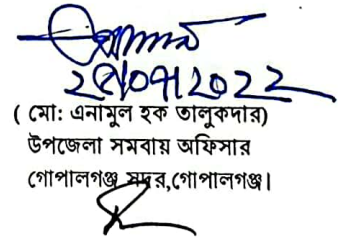 ২৫/০৭/2022
( মো: এনামুল হক তালুকদার)
উপজেলা সমবায় অফিসার
গোপালগঞ্জ সদর,গোপালগঞ্জ।